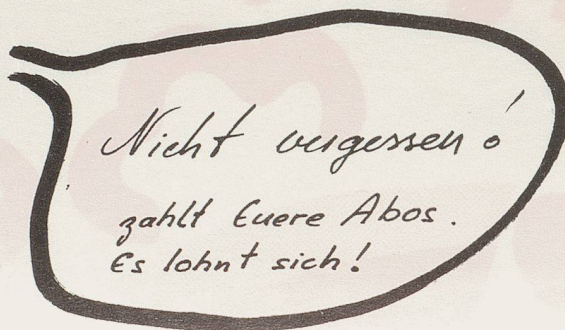 Nicht vergessen!
zahlt Euere Abos.
Es lohnt sich!